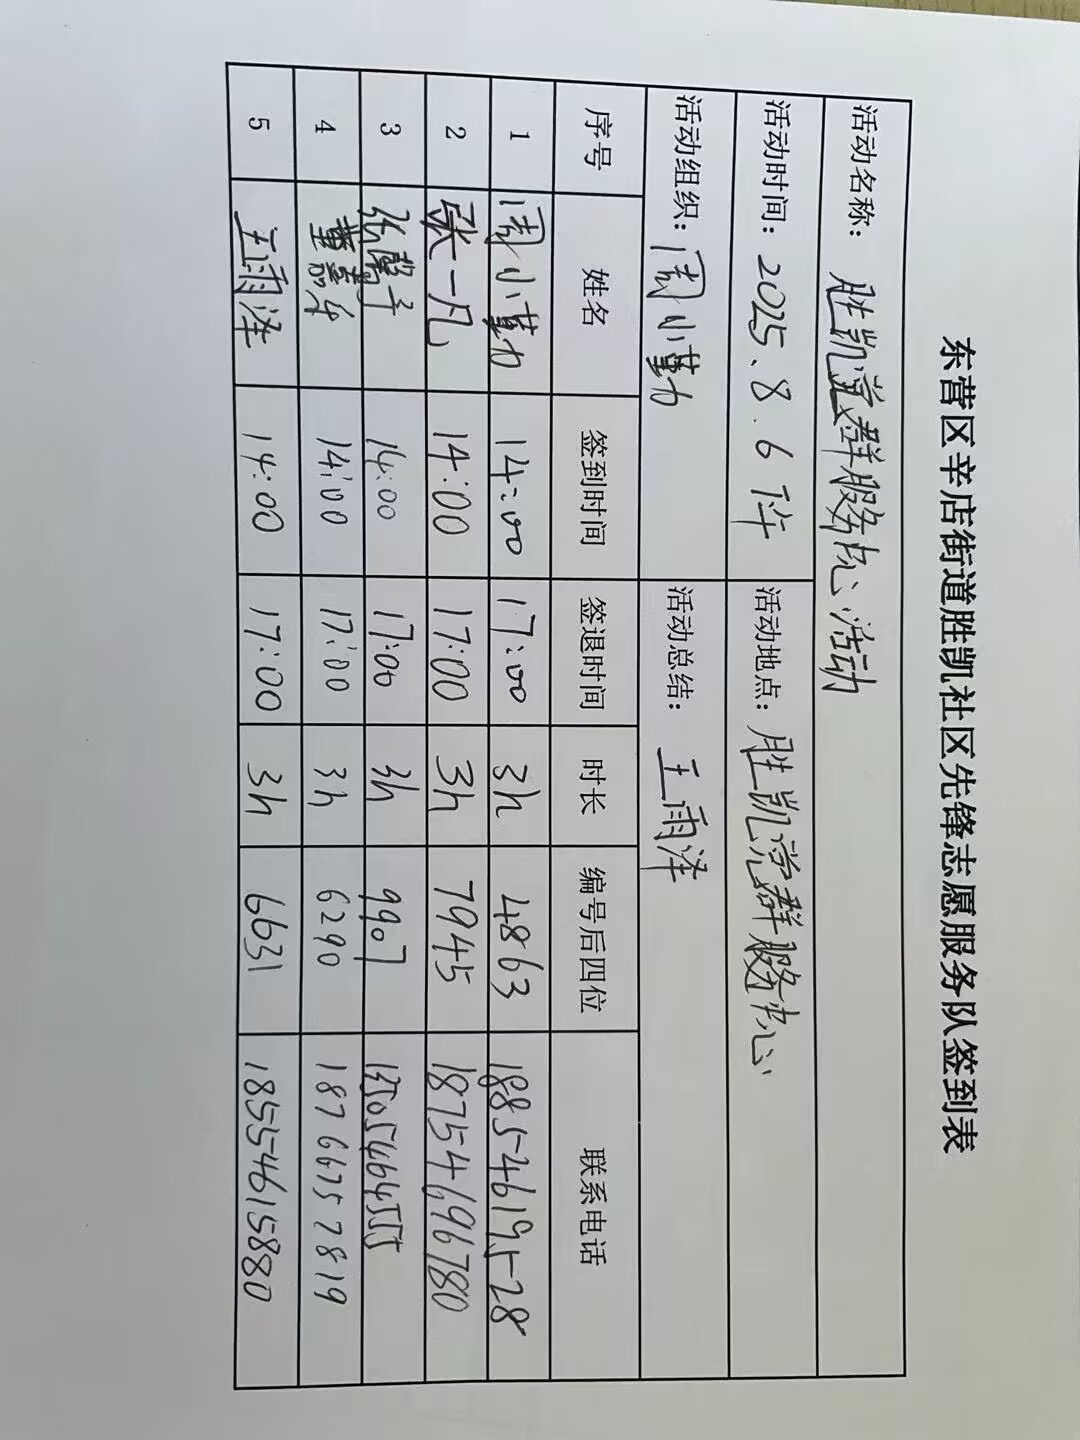 东营区辛店街道胜凯社区先锋志愿服务队签到表
活动名称： 胜凯党群服务中心活动
活动时间：2025.8.6 下午 活动地点：胜凯党群服务中心
活动组织：周小勤 活动总结：王雨泽
序号 姓名 签到时间 签退时间 时长 编号后四位 联系电话
1 周小勤 14:00 17:00 3h 4863 18854619528
2 张一凡 14:00 17:00 3h 7945 18754696780
3 张馨子 14:00 17:00 3h 9907
4 董嘉乐 14:00 17:00 3h 6290 18766757819
5 王雨泽 14:00 17:00 3h 6631 18554615880